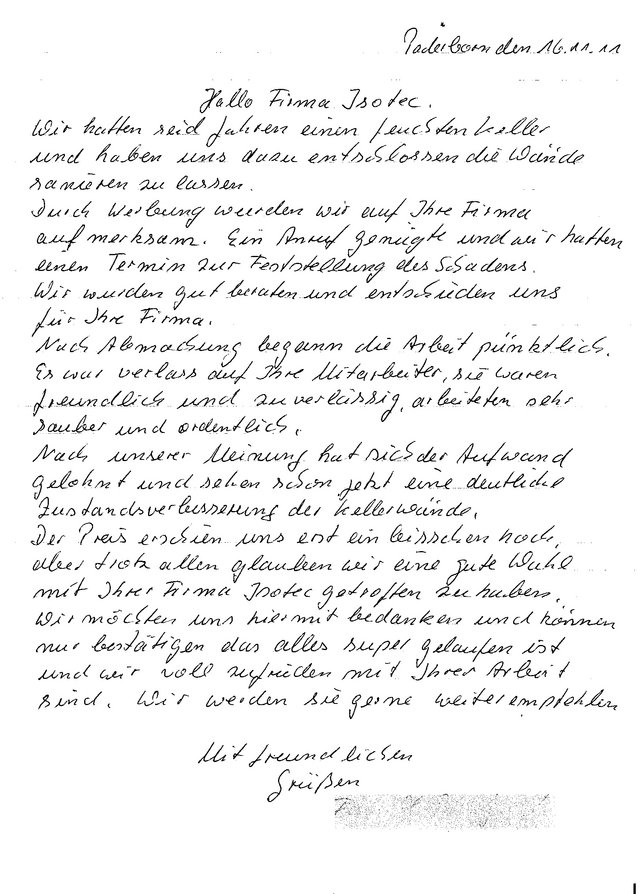 Paderborn den 16.11.11
Hallo Firma Isotec.
Wir hatten seid Jahren einen feuchten Keller
und haben uns dazu entschlossen die Wände
sanieren zu lassen.
Durch Werbung wurden wir auf Ihre Firma
aufmerksam. Ein Anruf genügte und wir hatten
einen Termin zur Feststellung des Schadens.
Wir wurden gut beraten und entschieden uns
für Ihre Firma.
Nach Abmachung begann die Arbeit pünktlich.
Es war verlass auf Ihre Mitarbeiter, sie waren
freundlich und zuverlässig, arbeiteten sehr
sauber und ordentlich.
Nach unserer Meinung hat sich der Aufwand
gelohnt und sehen schon jetzt eine deutliche
Zustandsverbesserung der Kellerwände.
Der Preis erschien uns erst ein bisschen hoch,
aber trotz allen glauben wir eine gute Wahl
mit Ihrer Firma Isotec getroffen zu haben.
Wir möchten uns hiermit bedanken und können
nur bestätigen das alles super gelaufen ist
und wir voll zufrieden mit Ihrer Arbeit
sind. Wir werden sie gerne weiterempfehlen
Mit freundlichen
Grüßen